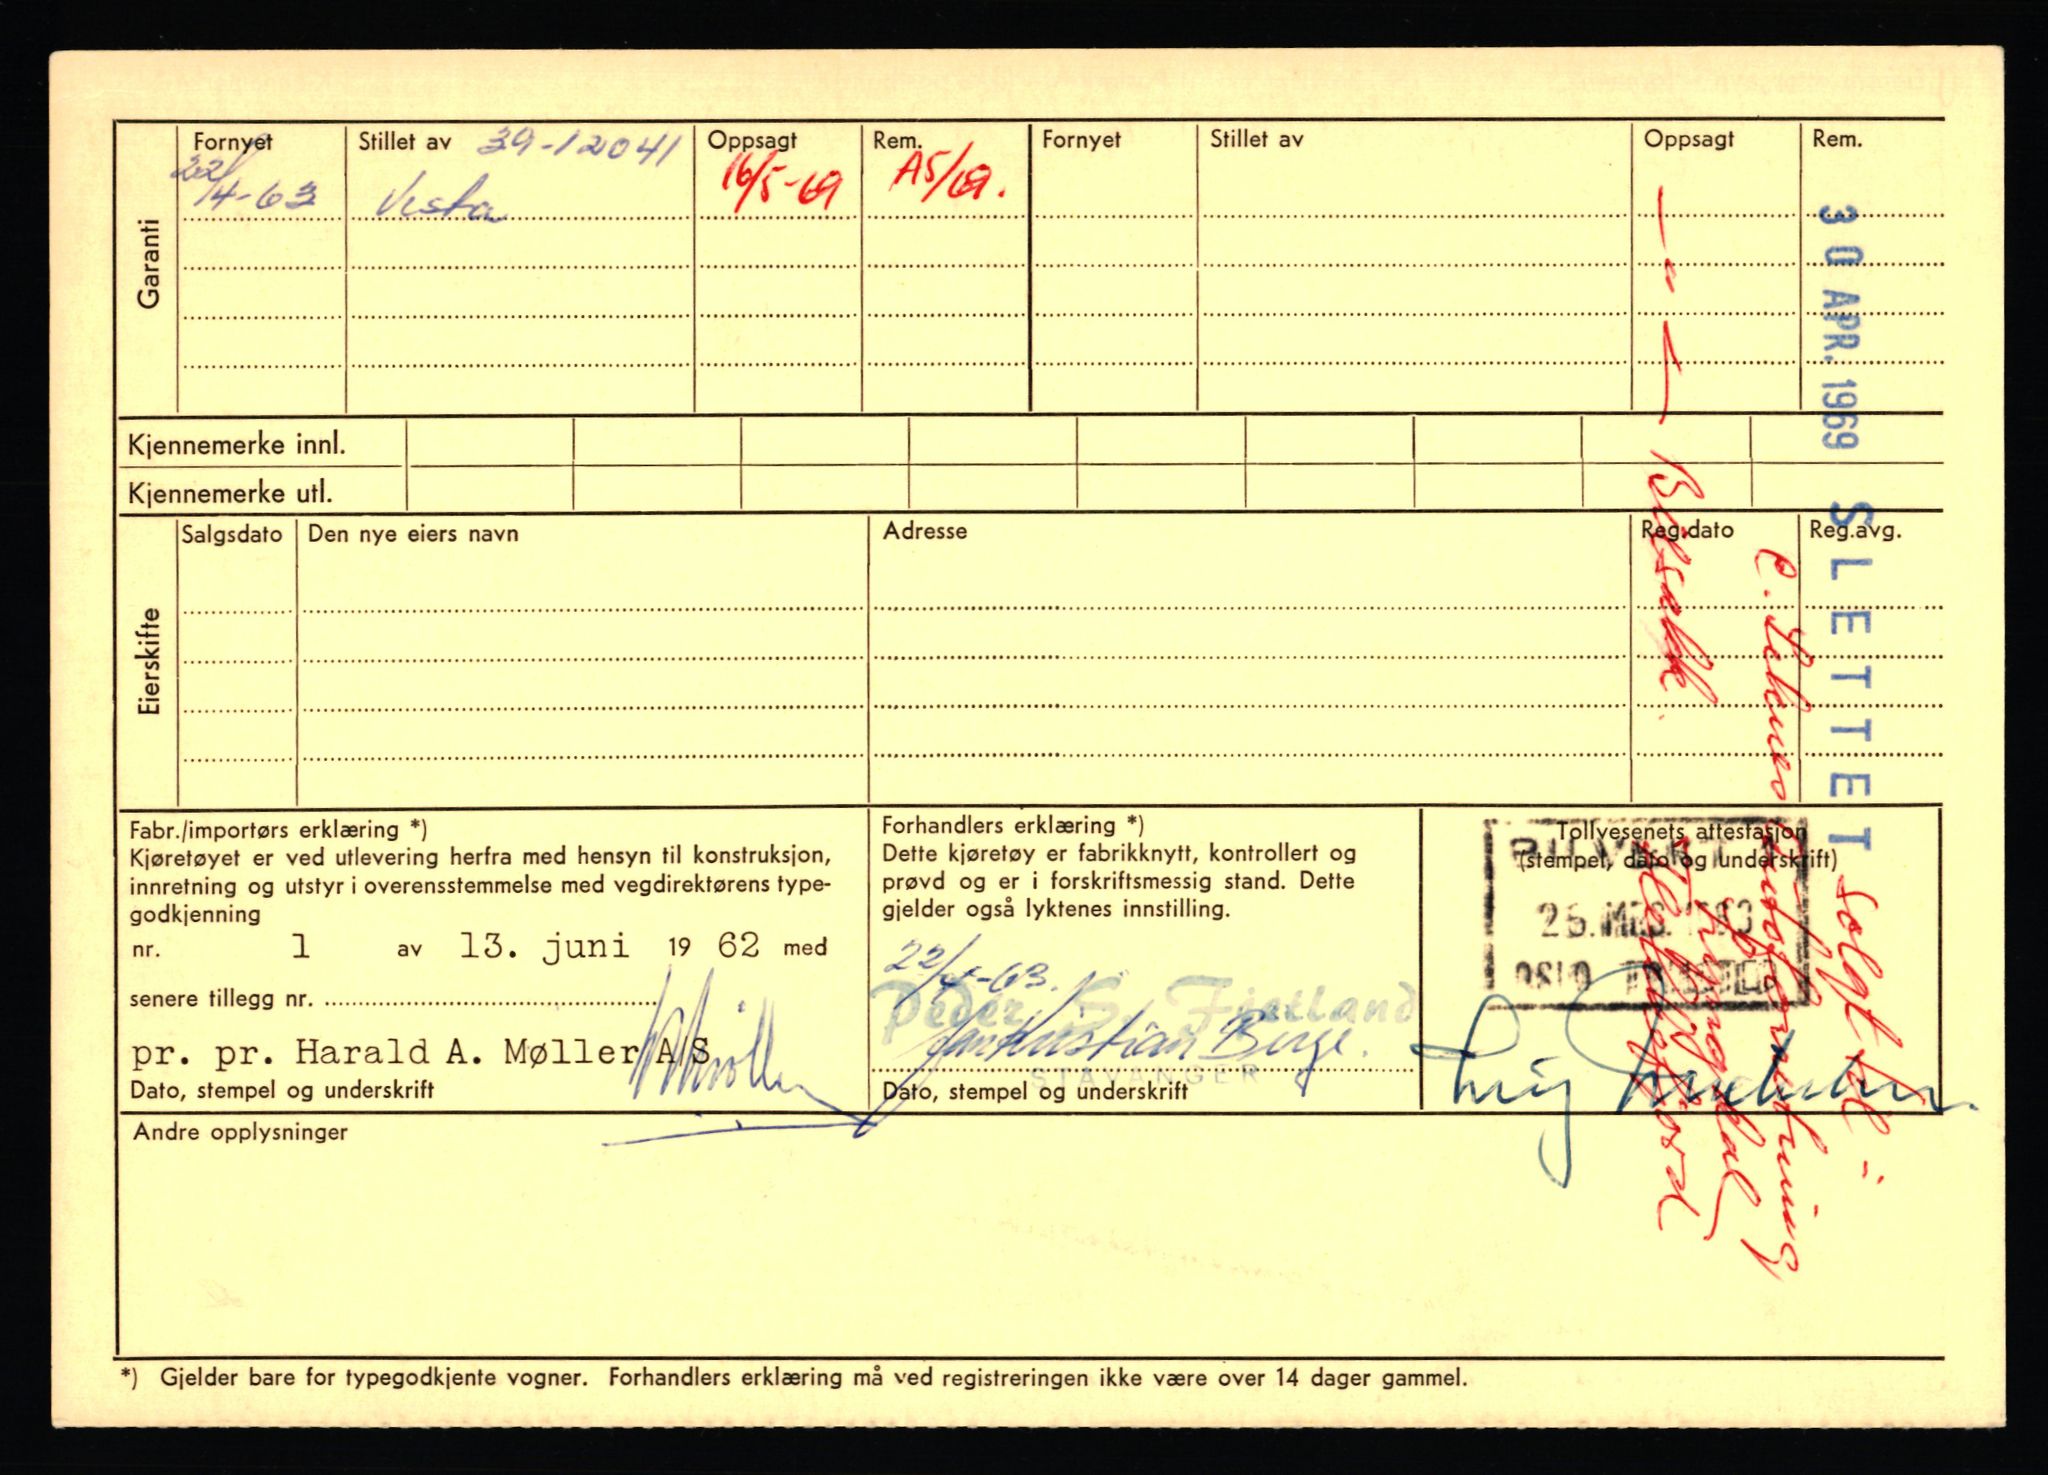 Garanti
Fornyet Stillet av 39-12041 Oppsagt Rem. Fornyet Stillet av Oppsagt Rem.
22/4-63 Vesta 16/5-69 A5/69.
Kjennemerke innl.
Kjennemerke utl.
Eierskifte
Salgsdato Den nye eiers navn Adresse Reg.dato Reg.avg.
30 APR. 1969 SLETTET
Solgt til
Fabr./importørs erklæring *)
Kjøretøyet er ved utlevering herfra med hensyn til konstruksjon,
innretning og utstyr i overensstemmelse med vegdirektørens type-
godkjenning
nr. 1 av 13. juni 19 62 med
senere tillegg nr.
pr. pr. Harald A. Møller A/S
Dato, stempel og underskrift
Forhandlers erklæring *)
Dette kjøretøy er fabrikknytt, kontrollert og
prøvd og er i forskriftsmessig stand. Dette
gjelder også lyktenes innstilling.
22/4-63.
Peder S. Fjetland
Jan Kristian Berge.
STAVANGER
Dato, stempel og underskrift
Tollvesenets attestasjon
(stempel, dato og underskrift)
OSLO
Andre opplysninger
*) Gjelder bare for typegodkjente vogner. Forhandlers erklæring må ved registreringen ikke være over 14 dager gammel.